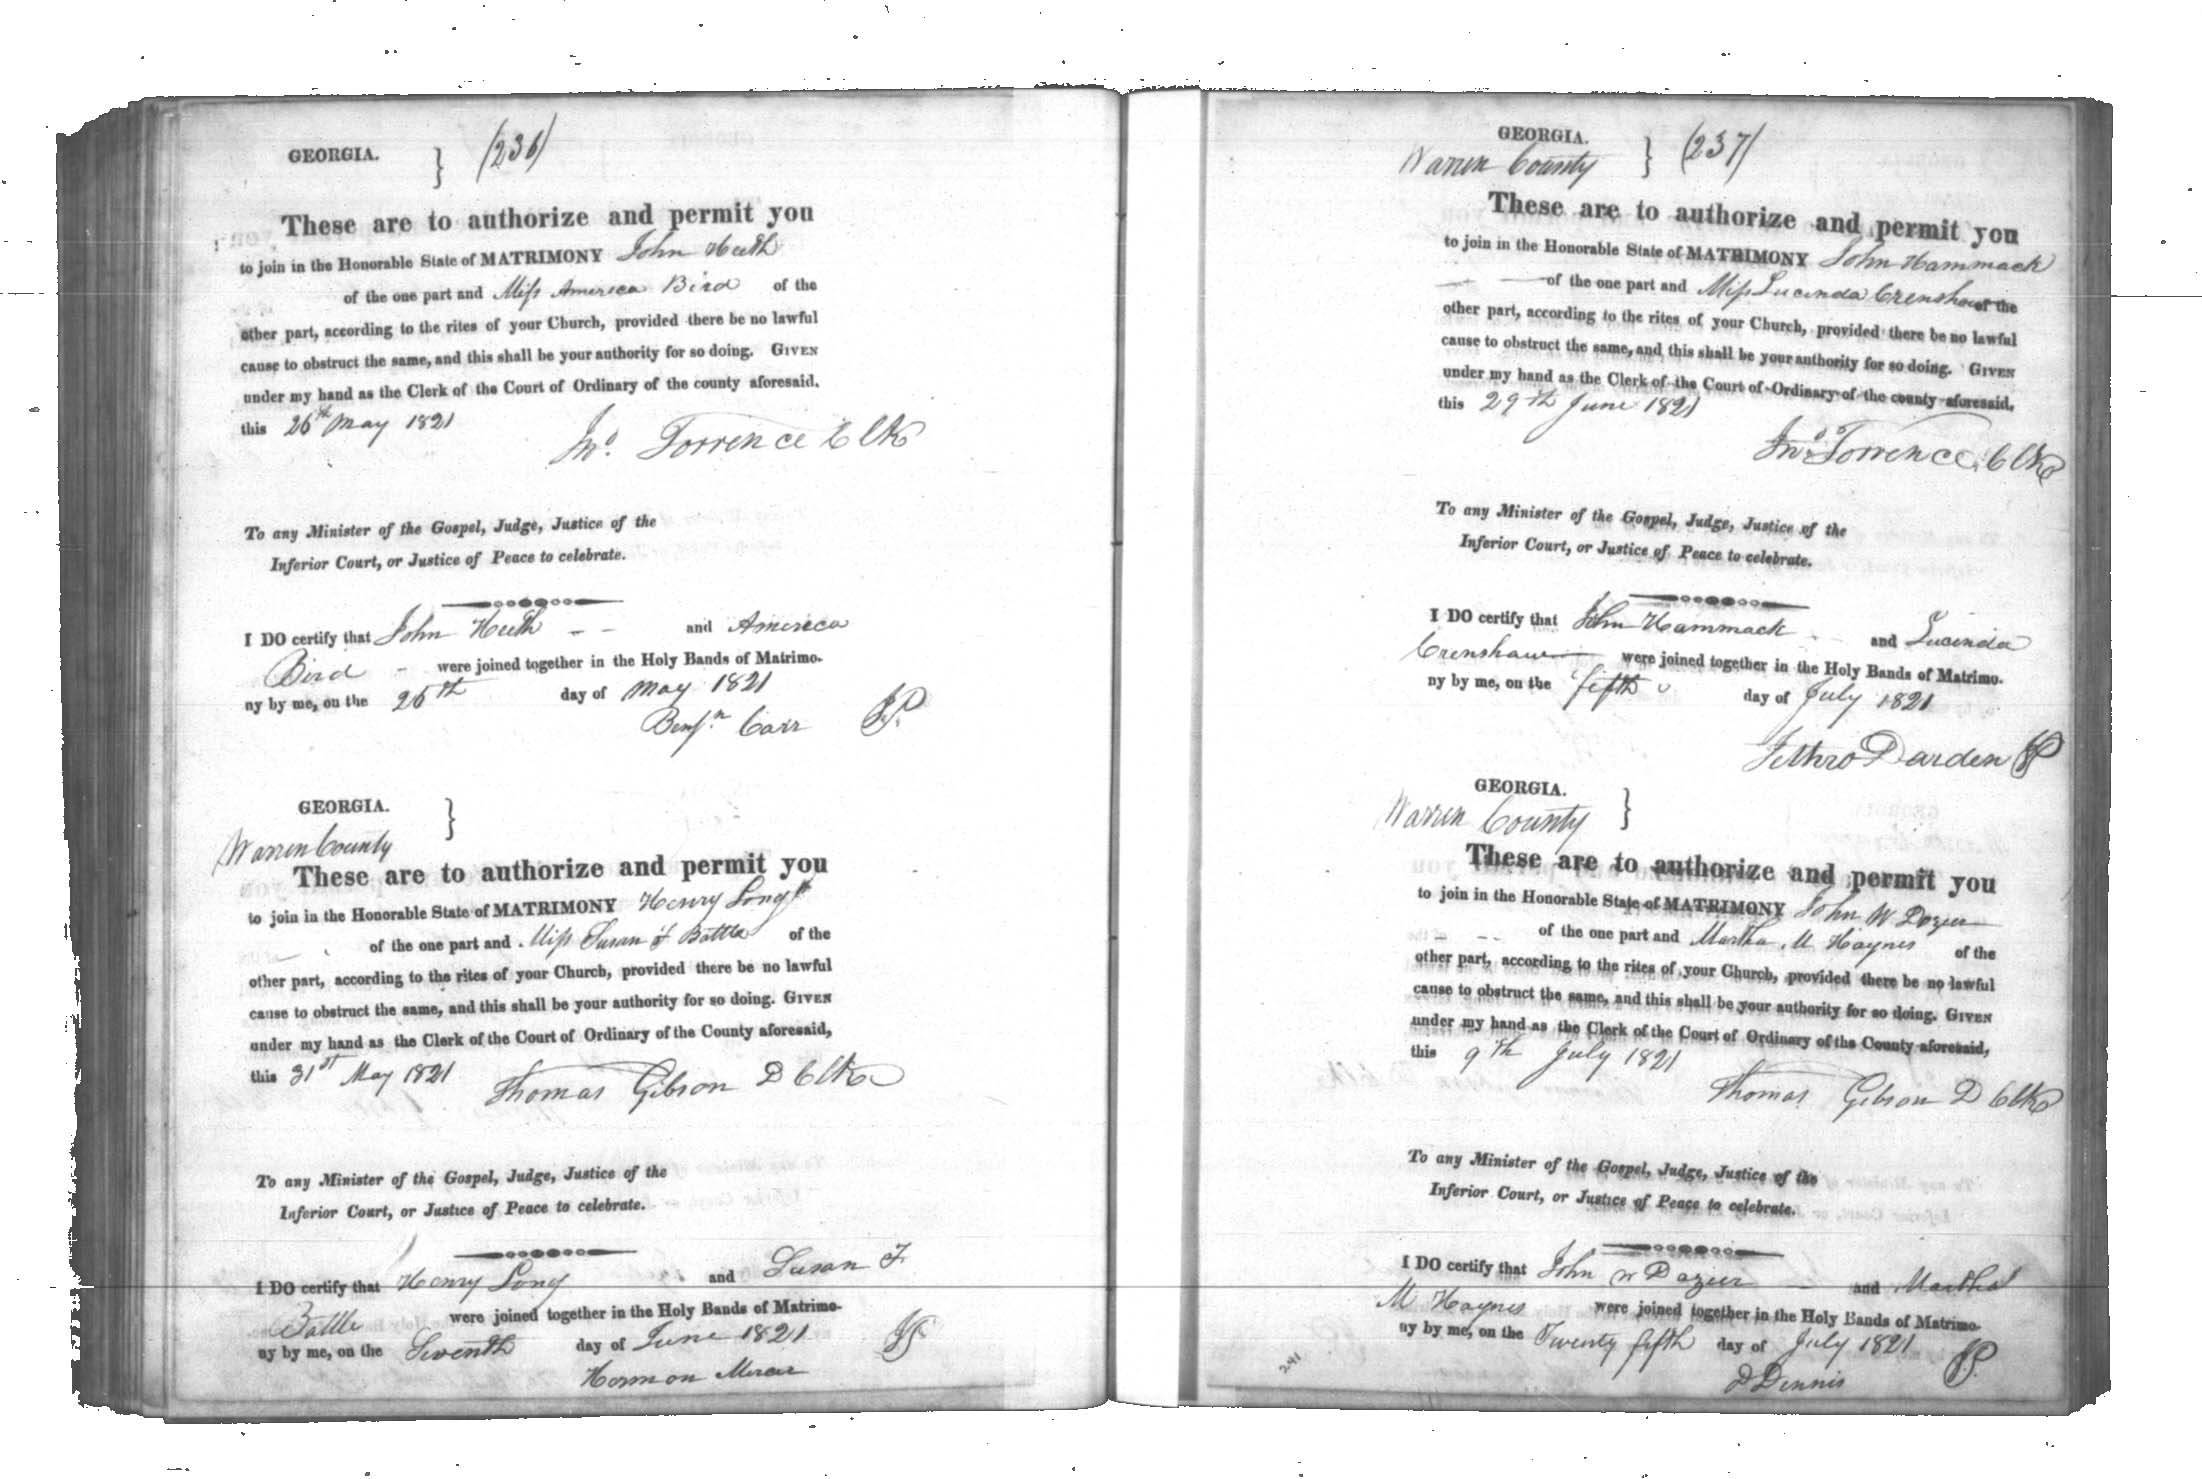 GEORGIA. } (236)
These are to authorize and permit you
to join in the Honorable State of MATRIMONY John Heeth
of the one part and Miss America Bird of the
other part, according to the rites of your Church, provided there be no lawful
cause to obstruct the same, and this shall be your authority for so doing. GIVEN
under my hand as the Clerk of the Court of Ordinary of the county aforesaid.
this 26th May 1821
Jno. Torrence Clk
To any Minister of the Gospel, Judge, Justice of the
Inferior Court, or Justice of Peace to celebrate.
I DO certify that John Heeth - - and America
Bird - were joined together in the Holy Bands of Matrimo-
ny by me, on the 26th day of May 1821
Benjn. Carr J.P.
GEORGIA. }
Warren County
These are to authorize and permit you
to join in the Honorable State of MATRIMONY Henry Long
of the one part and Miss Susan F Battle of the
other part, according to the rites of your Church, provided there be no lawful
cause to obstruct the same, and this shall be your authority for so doing. GIVEN
under my hand as the Clerk of the Court of Ordinary of the County aforesaid,
this 31st May 1821
Thomas Gibson D Clk
To any Minister of the Gospel, Judge, Justice of the
Inferior Court, or Justice of Peace to celebrate.
I DO certify that Henry Long and Susan F
Battle were joined together in the Holy Bands of Matrimo-
ny by me, on the Seventh day of June 1821
Hormon Mercer JP
GEORGIA. } (237)
Warren County
These are to authorize and permit you
to join in the Honorable State of MATRIMONY John Hammack
of the one part and Miss Lucinda Crenshaw of the
other part, according to the rites of your Church, provided there be no lawful
cause to obstruct the same, and this shall be your authority for so doing. GIVEN
under my hand as the Clerk of the Court of Ordinary of the county aforesaid,
this 29th June 1821
Jno. Torrence Clk
To any Minister of the Gospel, Judge, Justice of the
Inferior Court, or Justice of Peace to celebrate.
I DO certify that John Hammack and Lucinda
Crenshaw were joined together in the Holy Bands of Matrimo-
ny by me, on the fifth day of July 1821
Jethro Darden JP
GEORGIA. }
Warren County
These are to authorize and permit you
to join in the Honorable State of MATRIMONY John W Dozier
of the one part and Martha M Haynes of the
other part, according to the rites of your Church, provided there be no lawful
cause to obstruct the same, and this shall be your authority for so doing. GIVEN
under my hand as the Clerk of the Court of Ordinary of the County aforesaid,
this 9th July 1821
Thomas Gibson D Clk
To any Minister of the Gospel, Judge, Justice of the
Inferior Court, or Justice of Peace to celebrate.
I DO certify that John W Dozier and Martha
M Haynes were joined together in the Holy Bands of Matrimo-
ny by me, on the Twenty fifth day of July 1821
D Dennis JP.
241